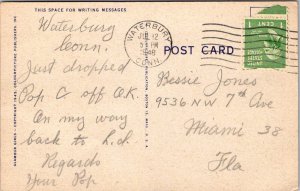 THIS SPACE FOR WRITING MESSAGES
Waterbury
Conn.
Just dropped
Pop & off O.K.
On my way
back to L.I.
Regards
Your Pop
WATERBURY
5 PM
1948
CONN.
POST CARD
1 CENT 1
Bessie Jones
9536 NW 7th Ave
Miami 38
Fla